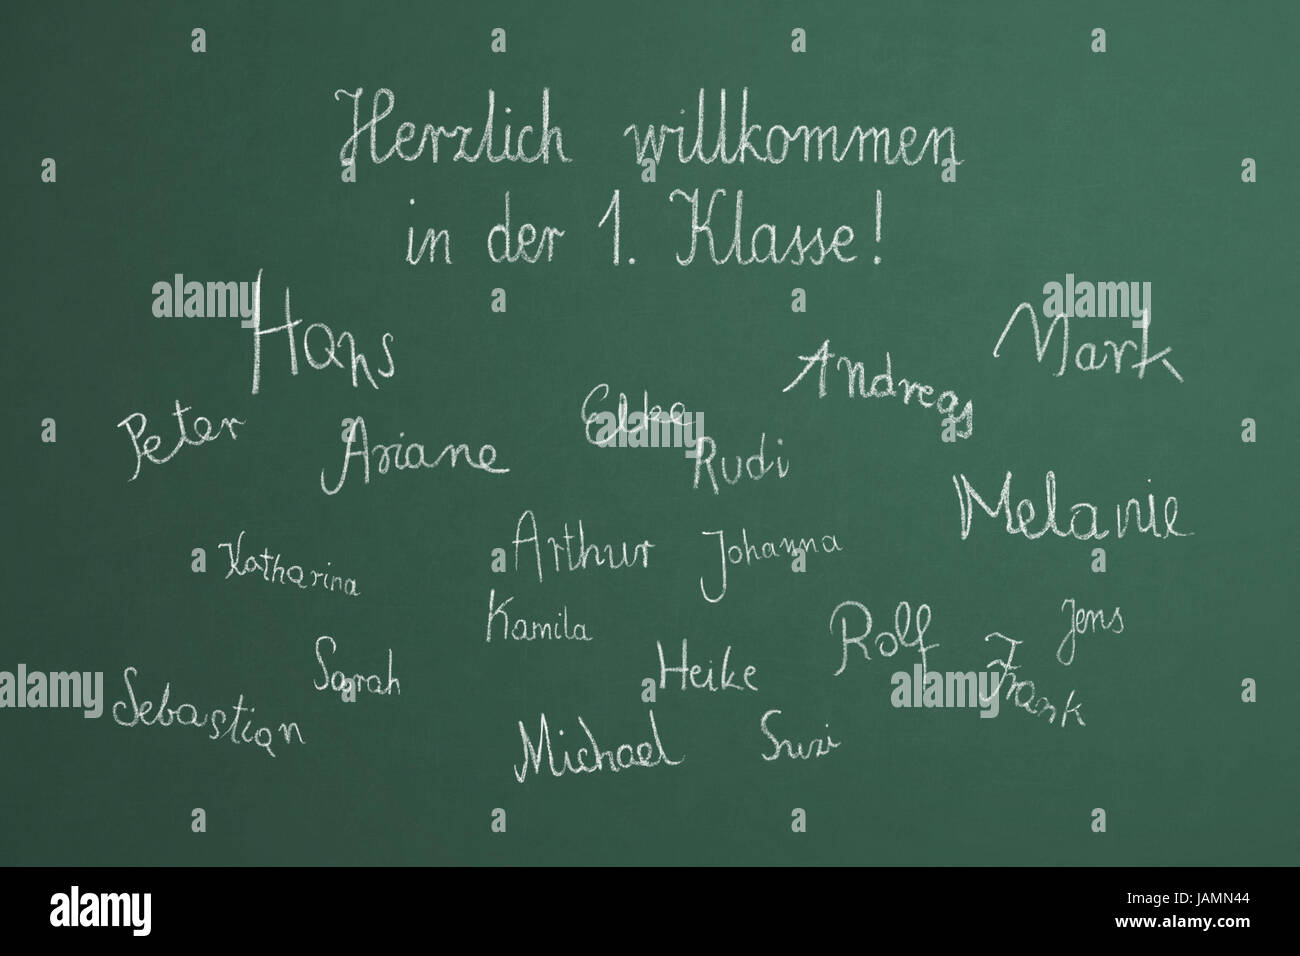 Herzlich willkommen
in der 1. Klasse!
Hans
Mark
Andreas
Peter
Ariane
Elke
Rudi
Melanie
Katharina
Arthur
Johanna
Kamila
Rolf
Jens
Sarah
Heike
Frank
Sebastian
Michael
Suzi
alamy
Image ID: JAMN44
www.alamy.com